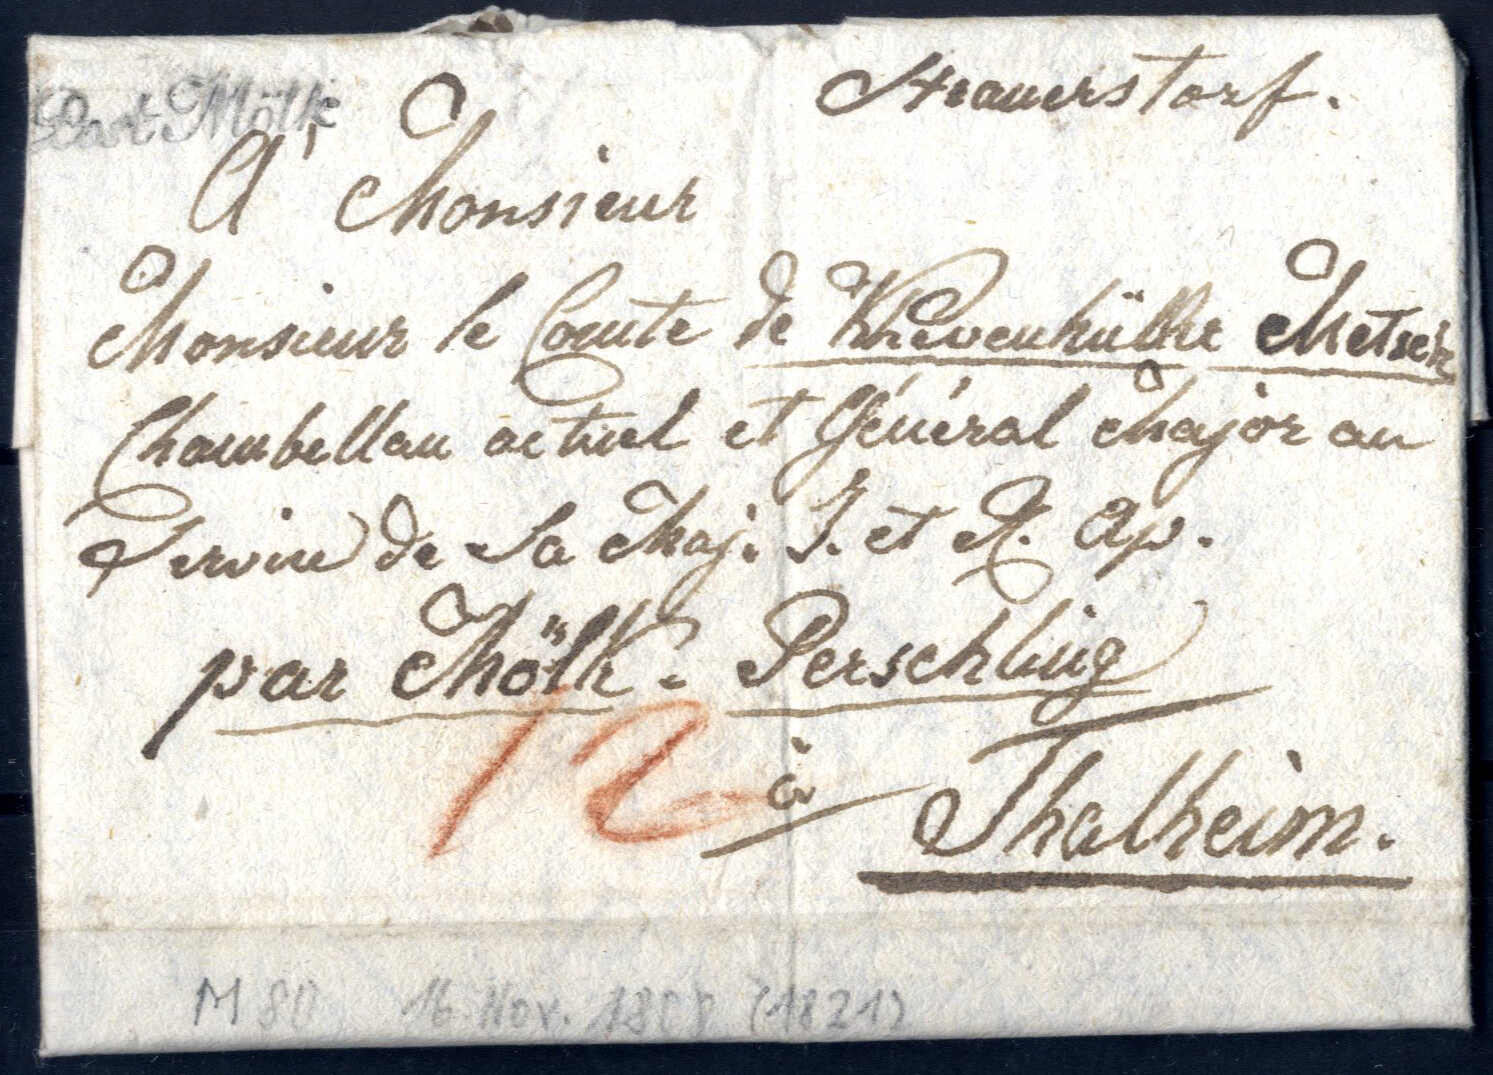 Post Mölk
Strauerstorf.
A' Monsieur
Monsieur le Comte de Khevenhüller Metsch
Chambellan actuel et Général Major au
Service de Sa Maj. I. et R. Ap.
par Mölk. Perschling
12
à
Thalheim.
M 80 16. Nov. 1808 (1821)